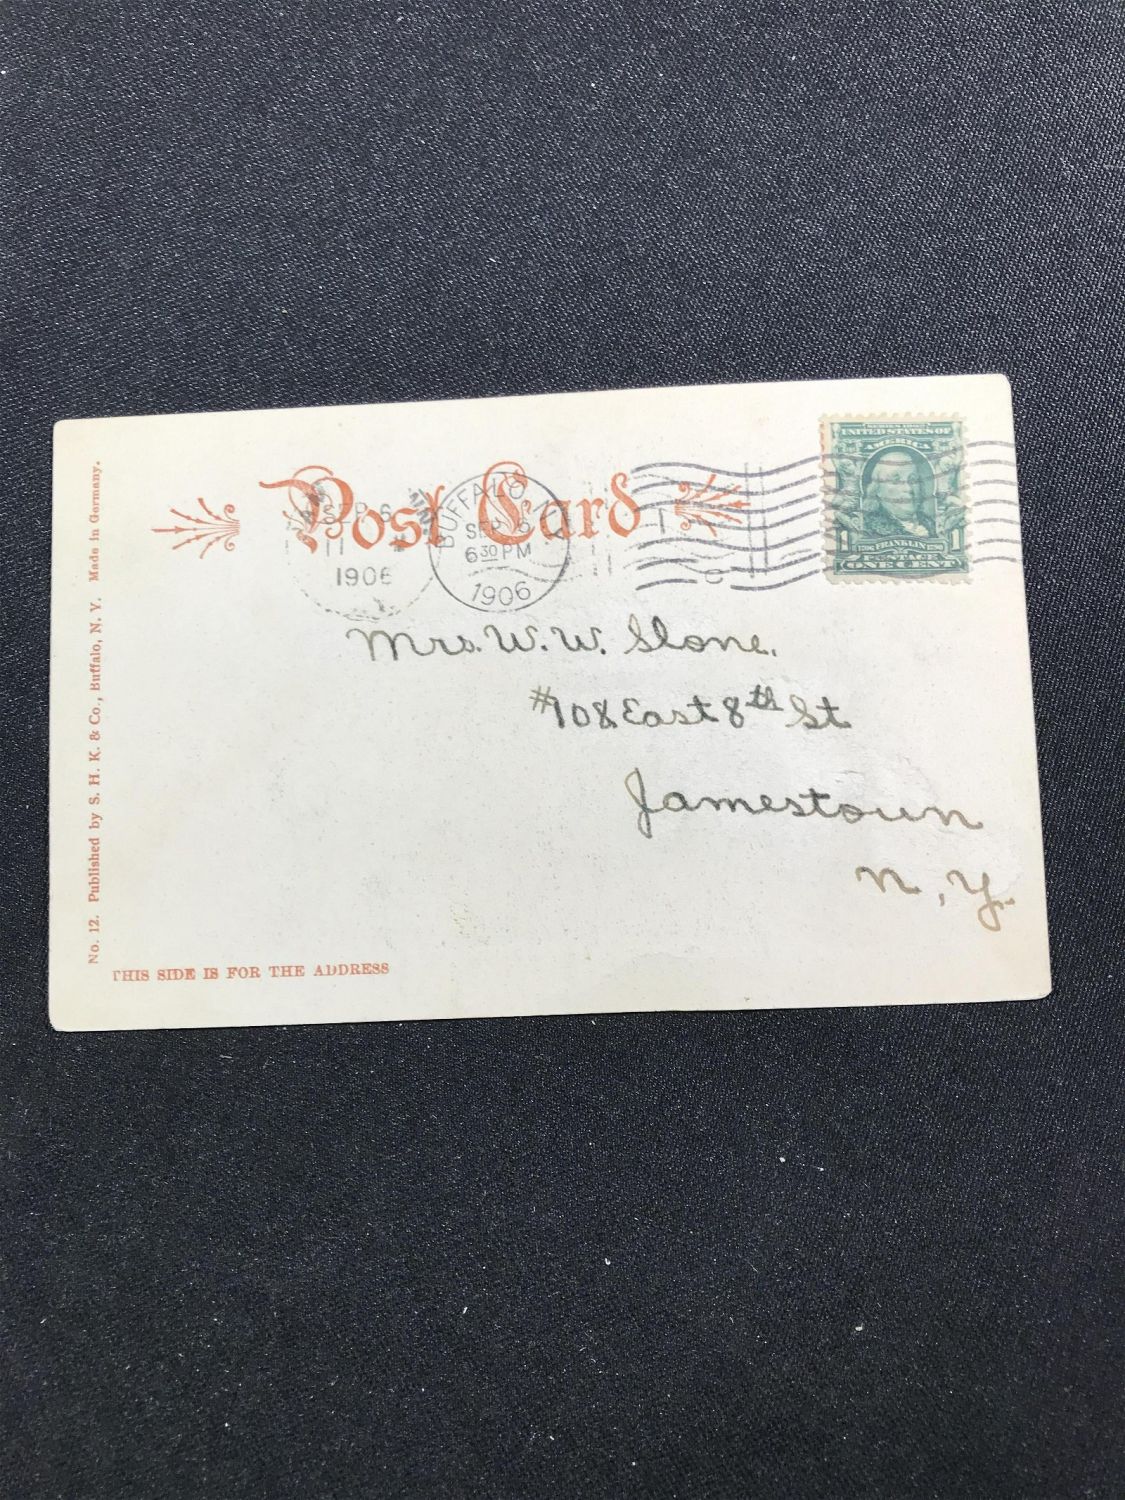 Post Card
SEP 6
11
1906
BUFFALO, N.Y.
SEP 6
6 30 PM
1906
SERIES 1902
UNITED STATES OF
AMERICA
1 FRANKLIN 1
ONE CENT
Mrs. W. W. Slone,
#108 East 8th St
Jamestown
N, Y.
No. 12. Published by S. H. K. & Co., Buffalo, N. Y. Made in Germany.
THIS SIDE IS FOR THE ADDRESS